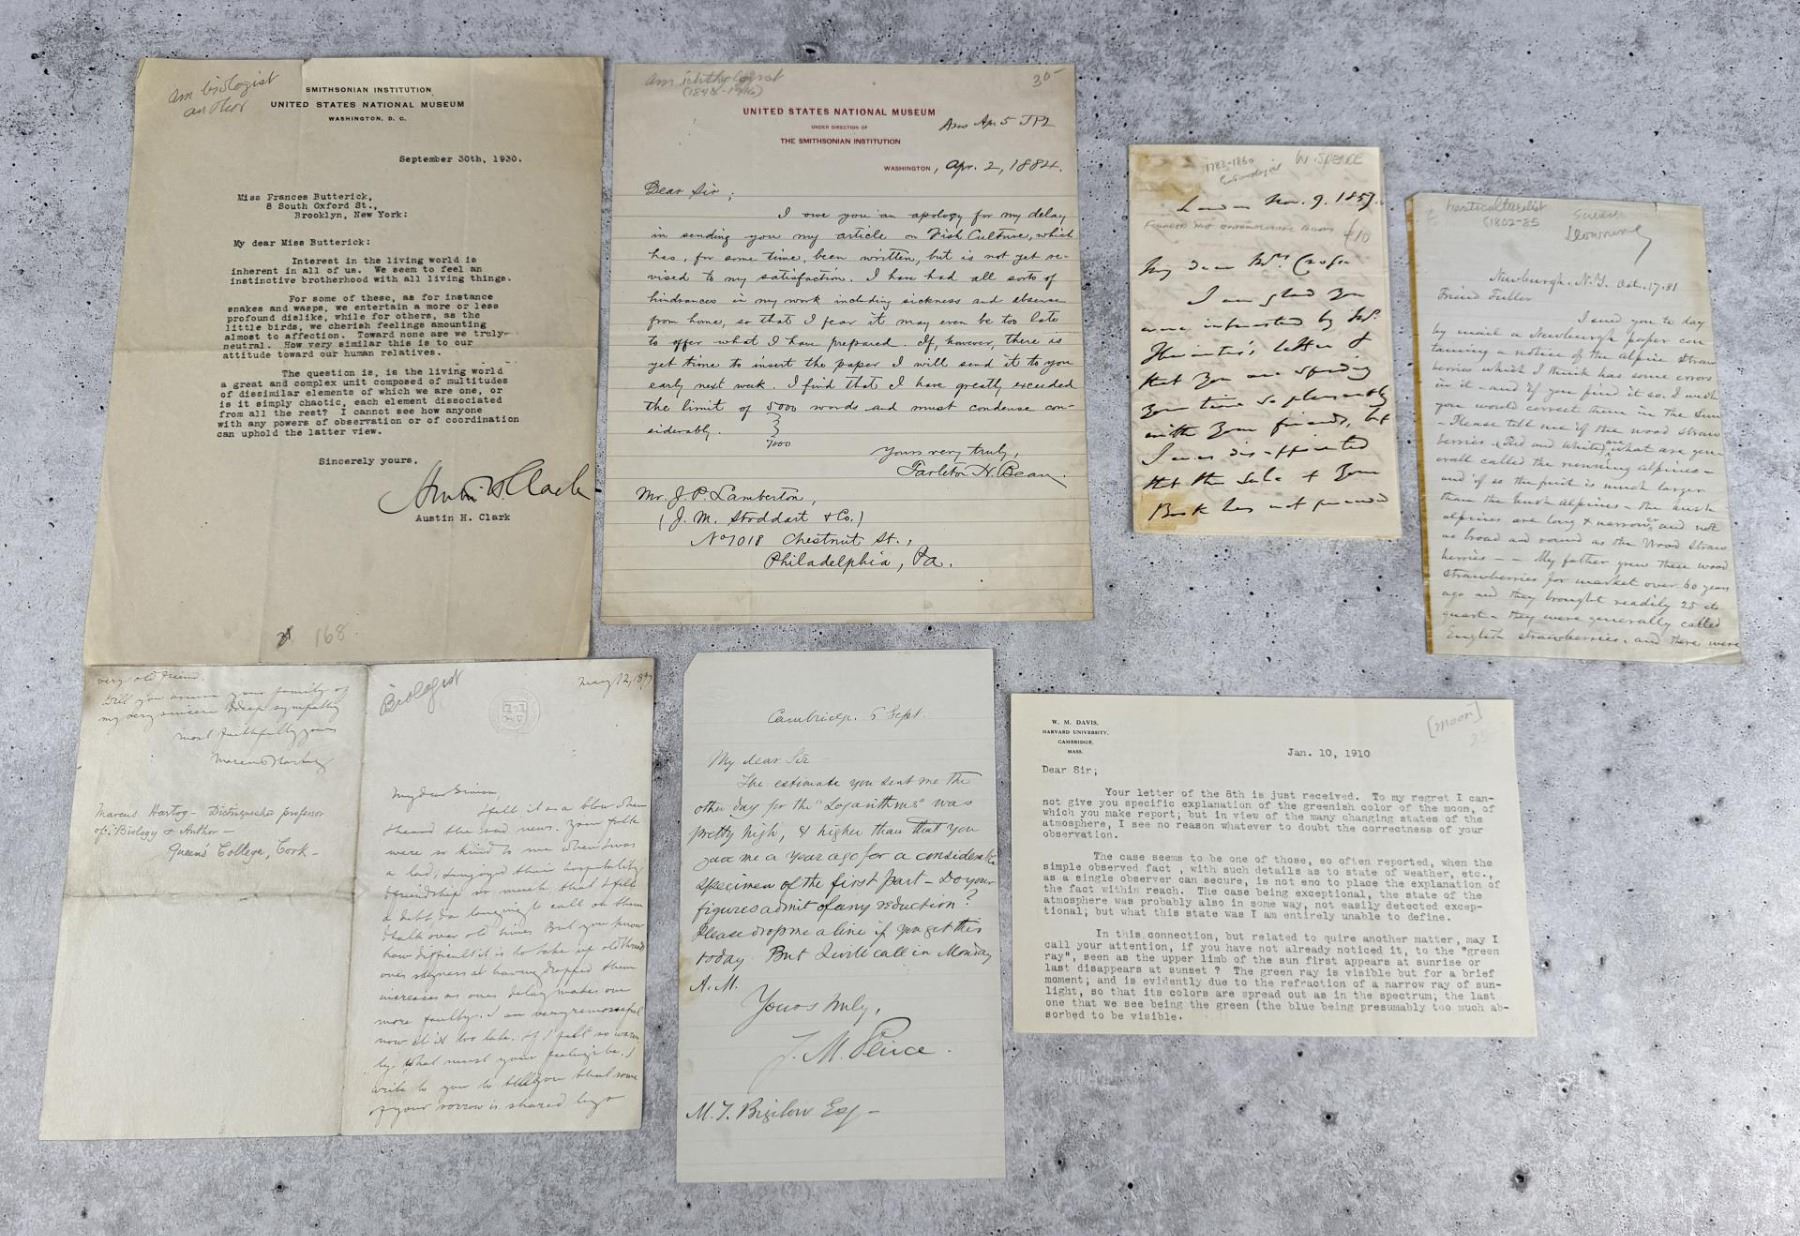 Am biologist
author
SMITHSONIAN INSTITUTION
UNITED STATES NATIONAL MUSEUM
WASHINGTON, D. C.
September 30th, 1930.
Miss Frances Butterick,
8 South Oxford St.,
Brooklyn, New York:
My dear Miss Butterick:
Interest in the living world is
inherent in all of us. We seem to feel an
instinctive brotherhood with all living things.
For some of these, as for instance
snakes and wasps, we entertain a more or less
profound dislike, while for others, as the
little birds, we cherish feelings amounting
almost to affection. Toward none are we truly
neutral. How very similar this is to our
attitude toward our human relatives.
The question is, is the living world
a great and complex unit composed of multitudes
of dissimilar elements of which we are one, or
is it simply chaotic, each element dissociated
from all the rest? I cannot see how anyone
with any powers of observation or of coordination
can uphold the latter view.
Sincerely yours,
Austin H. Clark
Austin H. Clark
168
Am ichthologist
30-
UNITED STATES NATIONAL MUSEUM
UNDER DIRECTION OF
THE SMITHSONIAN INSTITUTION
Ans Apr 5 JPL
WASHINGTON, Apr. 2, 1884.
Dear Sir;
I owe you an apology for my delay
in sending you my article on Fish Culture, which
has, for some time, been written, but is not yet re-
vised to my satisfaction. I have had all sorts of
hindrances in my work including sickness and absence
from home, so that I fear it may even be too late
to offer what I have prepared. If, however, there is
yet time to insert the paper I will send it to you
early next week. I find that I have greatly exceeded
the limit of 5000 words and must condense con-
siderably.
7000
Yours very truly,
Tarleton H. Bean.
Mr. J. P. Lamberton,
(J. M. Stoddart & Co.)
No 1018 Chestnut St.,
Philadelphia, Pa.
W. SPENCE
1783-1860
London Nov. 9. 1857.
$10
My dear Mrs
I am glad you
were interested by
letter &
that you are spending
your time so pleasantly
with your friends, but
I was disappointed
that the sale of your
Book has not
Horticulturelist
(1802-85
Downing
Newburgh. N.Y. Oct. 17. 81
Friend Fuller
I send you to day
by mail a Newburgh paper con
taining a notice of the Alpine Straw
berries which I think has some errors
in it - and if you find it so. I wish
you would correct them in the Sun
- Please tell me if the wood straw
berries (Red and White) are what are gen-
erall called the running alpines -
and if so the fruit is much larger
than the bush alpines - the bush
alpines are long & narrow, and not
as broad and round as the Wood Straw
berries - - My father grew these wood
strawberries for market over 60 years
ago and they brought readily 25 cts
quart - they were generally called
English strawberries. and there were
very old friend.
Will you assure your family of
my very sincere & deep sympathy
most faithfully yours
Marcus Hartog
Marcus Hartog - Distinguished professor
of Biology & Author -
Queen's College, Cork -
Biologist
May 12, 189
My dear Simon,
I felt it as a blow when
I heard the sad news. Your folk
were so kind to me when I was
a lad, I enjoyed their hospitality
& friendship so much that I felt
a debt & a longing to call on them
& talk over old times. But you know
how difficult it is to take up old threads
ones shyness at having dropped them
increases as ones delay makes one
more faulty. I am very remorseful
now it is too late. If I feel so warm
ly, what must your feelings be. I
write to you to tell you that some
of your sorrow is shared by
Cambridge. 6 Sept.
My dear Sir
The estimate you sent me the
other day for the "Logarithms" was
pretty high, & higher than that you
gave me a year ago for a considerable
specimen of the first part - Do your
figures admit of any reduction?
Please drop me a line if you get this
today. But I will call in Monday
A.M.
Yours truly,
J. M. Peirce.
M. T. Bigelow Esq -
W. M. DAVIS,
HARVARD UNIVERSITY,
CAMBRIDGE,
MASS.
[moon]
Jan. 10, 1910
Dear Sir;
Your letter of the 8th is just received. To my regret I can-
not give you specific explanation of the greenish color of the moon, of
which you make report; but in view of the many changing states of the
atmosphere, I see no reason whatever to doubt the correctness of your
observation.
The case seems to be one of those, so often reported, when the
simple observed fact , with such details as to state of weather, etc.,
as a single observer can secure, is not eno to place the explanation of
the fact within reach. The case being exceptional, the state of the
atmosphere was probably also in some way, not easily detected excep-
tional; but what this state was I am entirely unable to define.
In this connection, but related to quire another matter, may I
call your attention, if you have not already noticed it, to the "green
ray", seen as the upper limb of the sun first appears at sunrise or
last disappears at sunset ? The green ray is visible but for a brief
moment; and is evidently due to the refraction of a narrow ray of sun-
light, so that its colors are spread out as in the spectrum; the last
one that we see being the green (the blue being presumably too much ab-
sorbed to be visible.